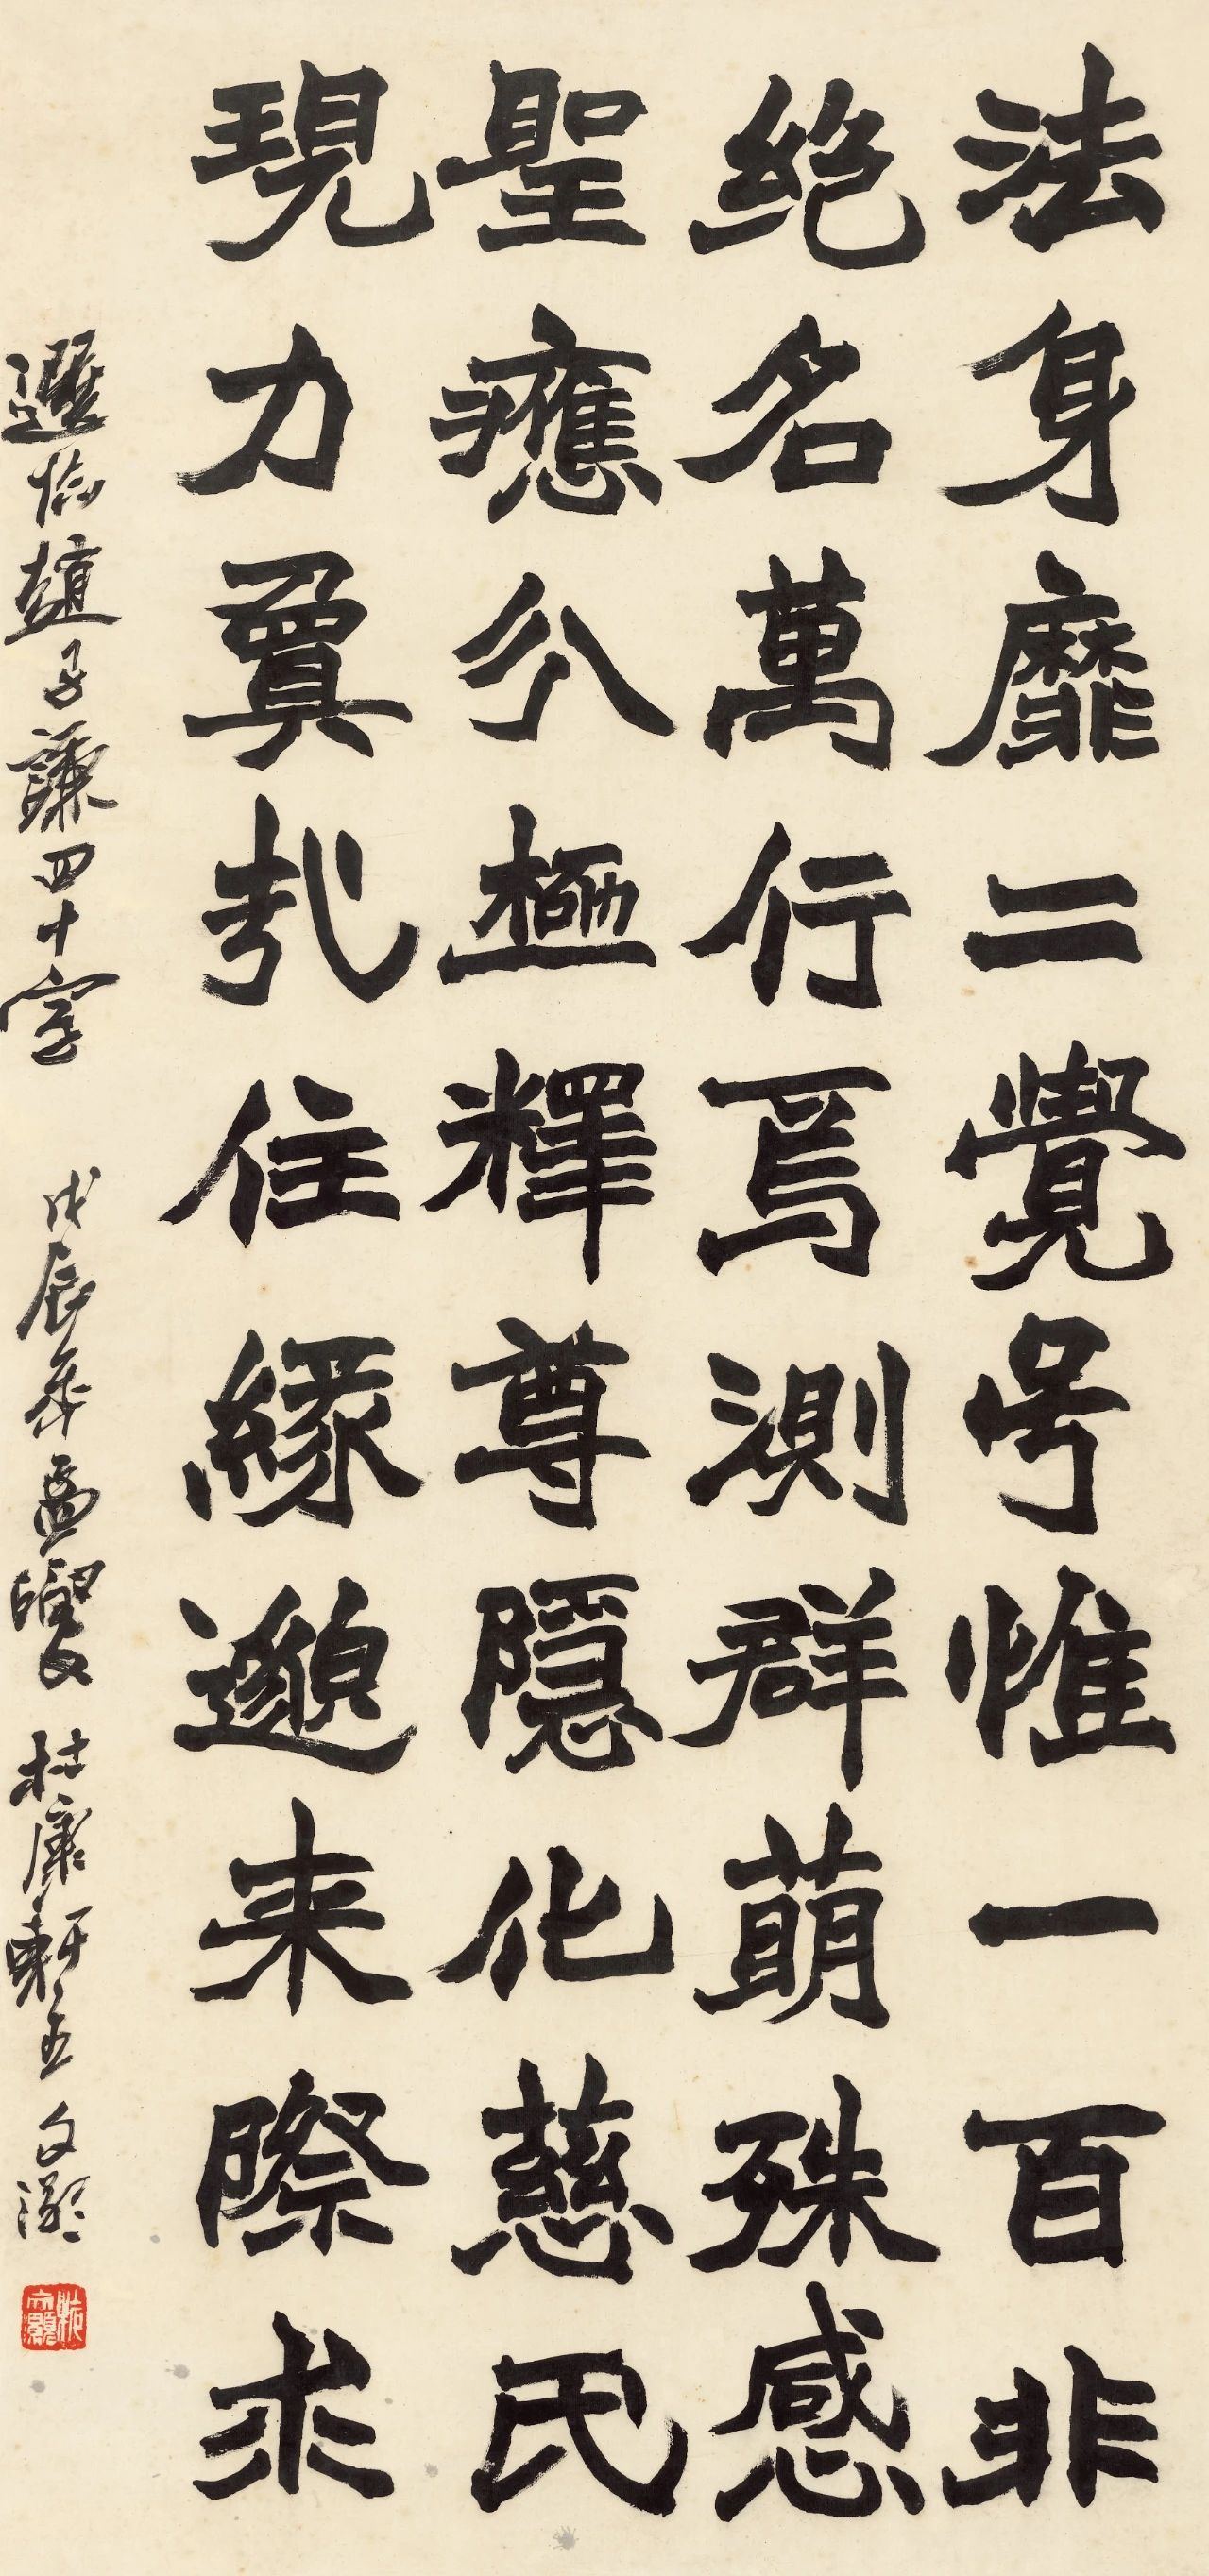 法身靡二覺号惟一百非
絶名萬行焉測群萌殊感
聖應分極釋尊隱化慈氏
現力夐哉住緣邈来際求
趙子謙四十字 戊辰年孟 杜康軒主 文灝